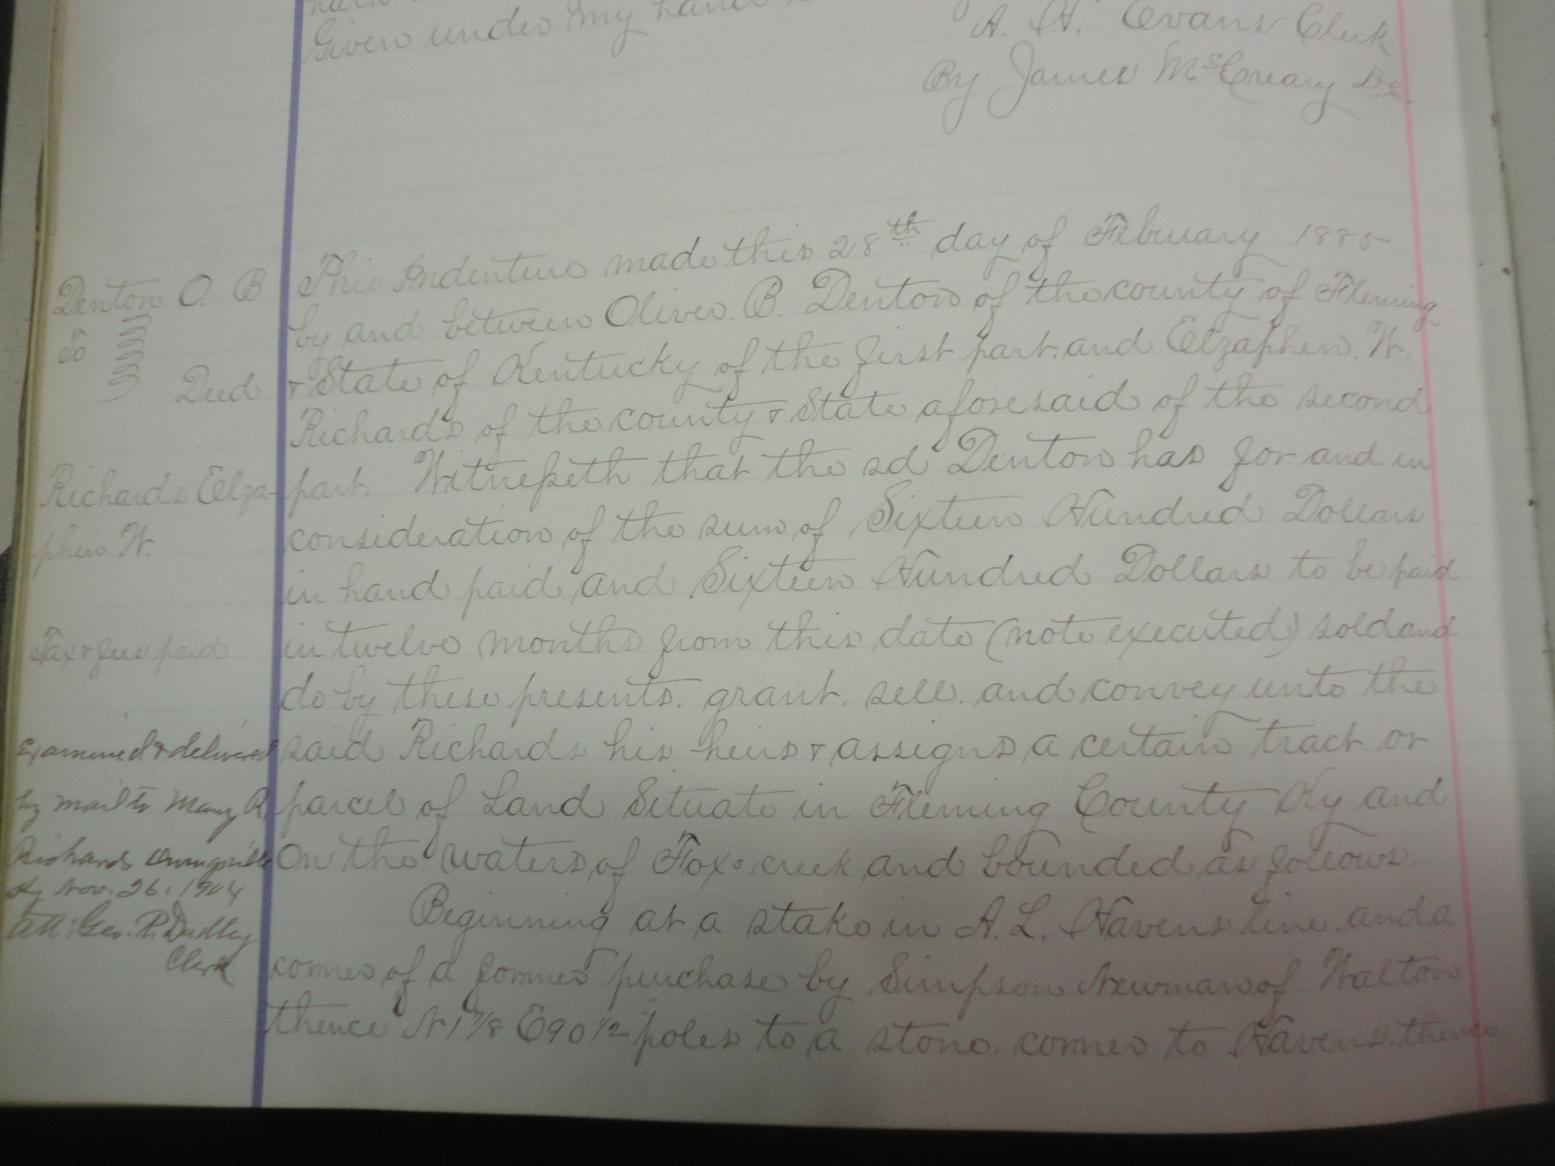 Given under my hand
A. H. Evans Clerk
By James McCreary D.C.
Denton O. B
To
Deed
Richards Elza-
phen W.
Tax & fees paid
Examined & delivered
by mail to Mary R.
Richards
Ky Nov. 26. 1904
Att: Geo. R. Dudley
Clerk
This Indenture made this 28th day of February 1885
by and between Oliver. B. Denton of the county of Fleming
& State of Kentucky of the first part. and Elzaphen. W.
Richards of the county & State aforesaid of the second
part. Witnesseth that the sd Denton has for and in
consideration of the sum of Sixteen Hundred Dollars
in hand paid and Sixteen Hundred Dollars to be paid
in twelve months from this date (note executed) sold and
do by these presents. grant. sell. and convey unto the
said Richards his heirs & assigns a certain tract or
parcel of Land Situate in Fleming County Ky and
On the waters of Fox creek and bounded as follows.
Beginning at a stake in A. L. Havens line. and a
corner of a former purchase by Simpson Newman of Walton
thence N 1 7/8 E 90 1/2 poles to a stone. corner to Havens. thence